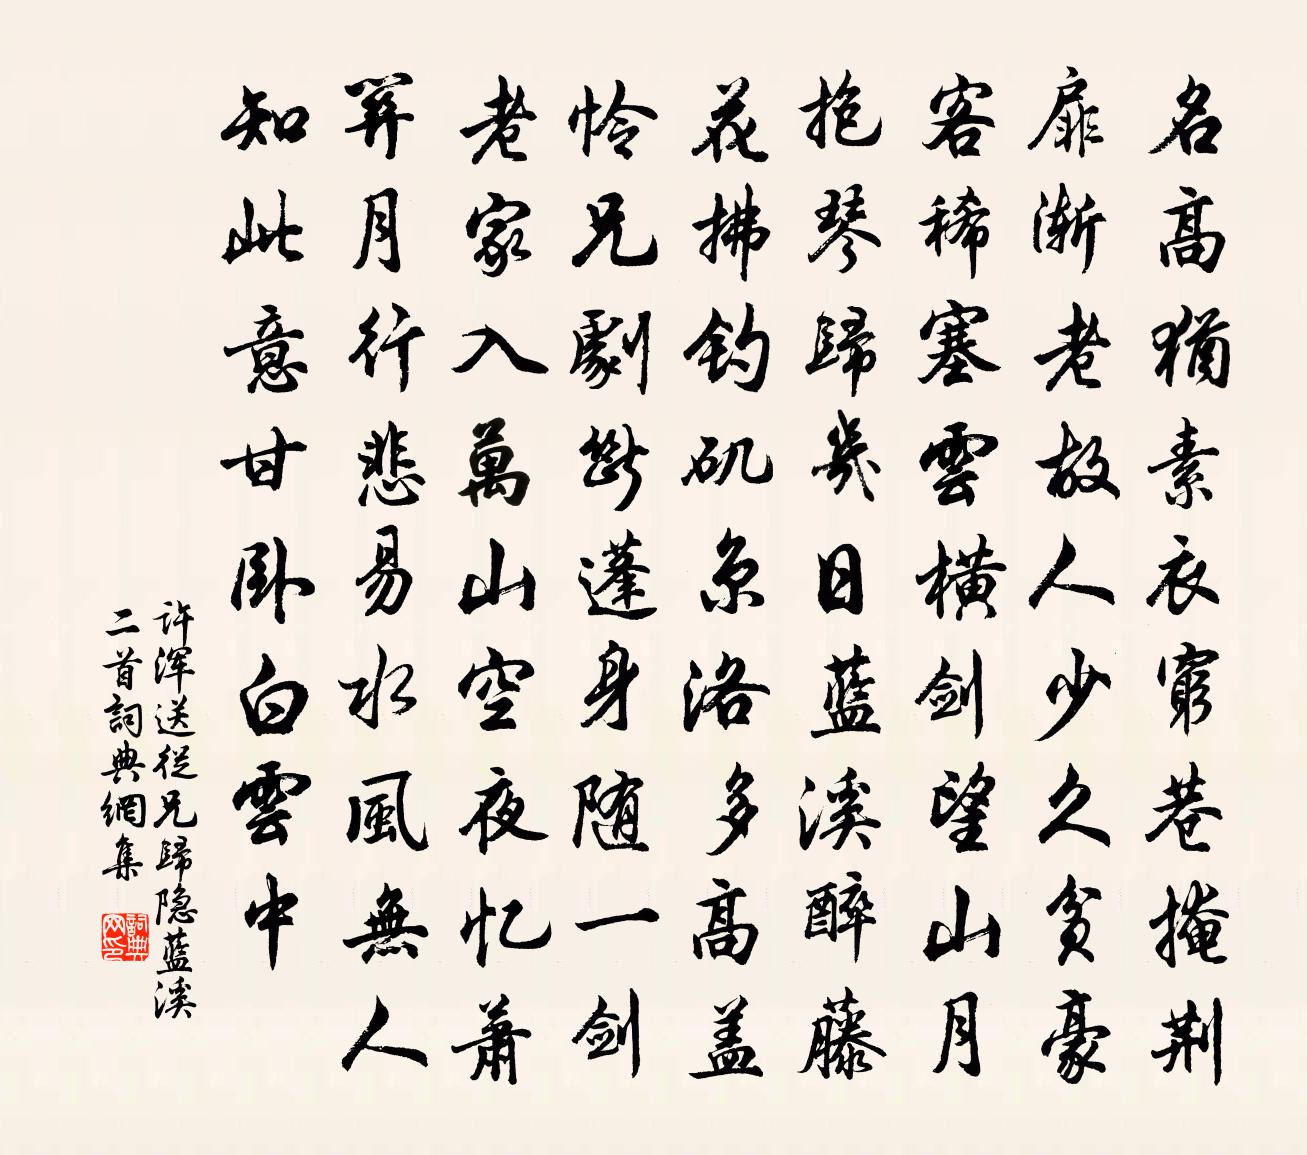 名高猶素衣窮巷掩荆
扉漸老故人少久貧豪
客稀塞雲横剑望山月
抱琴歸幾日藍溪醉藤
花拂钓矶京洛多高盖
怜兄劇斷蓬身随一剑
老家入萬山空夜忆蕭
關月行悲易水風無人
知此意甘卧白雲中
许浑送從兄歸隐藍溪
二首詞典網集
詞典网印